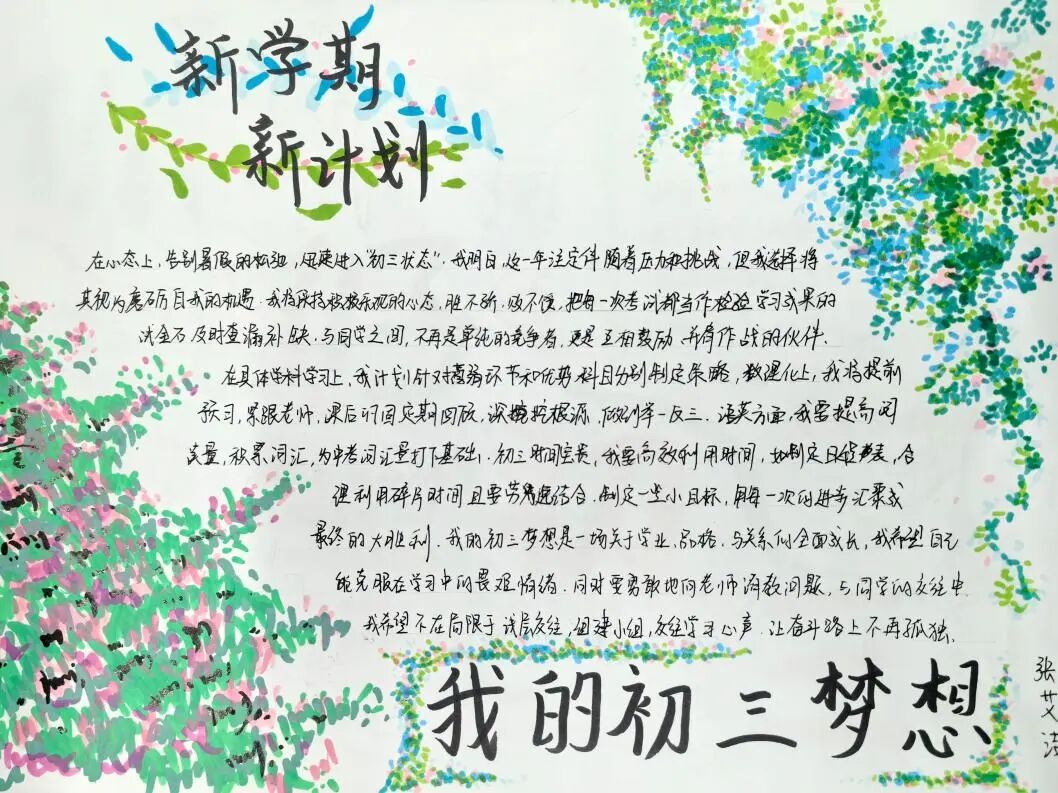 新学期
新计划
在心态上，告别暑假的松弛，迅速进入“初三状态”。我明白，这一年注定伴随着压力和挑战，但我选择将
其视为磨砺自我的机遇。我将保持积极乐观的心态，胜不骄，败不馁，把每一次考试都当作检验学习成果的
试金石及时查漏补缺。与同学之间，不再是单纯的竞争者，更是互相鼓励，并肩作战的伙伴。
在具体学科学习上，我计划针对薄弱环节和优势科目分别制定策略，数理化上，我将提前
预习，紧跟老师，课后巩固定期回放，深挖根源，做到举一反三。语英方面，我要提高阅
读量，积累词汇，为中考词汇量打下基础。初三时间宝贵，我要高效利用时间，如制定日程表，合
理利用碎片时间且要劳逸结合。制定一些小目标，用每一次的进步汇聚成
最终的大胜利。我的初三梦想是一场关于学业、品格、与关系的全面成长，我希望自己
能克服在学习中的畏难情绪。同时要勇敢地向老师请教问题，与同学的交往中
我希望不在局限于浅层交往，组建小组，交往学习心声。让奋斗路上不再孤独。
我的初三梦想
张艾洁